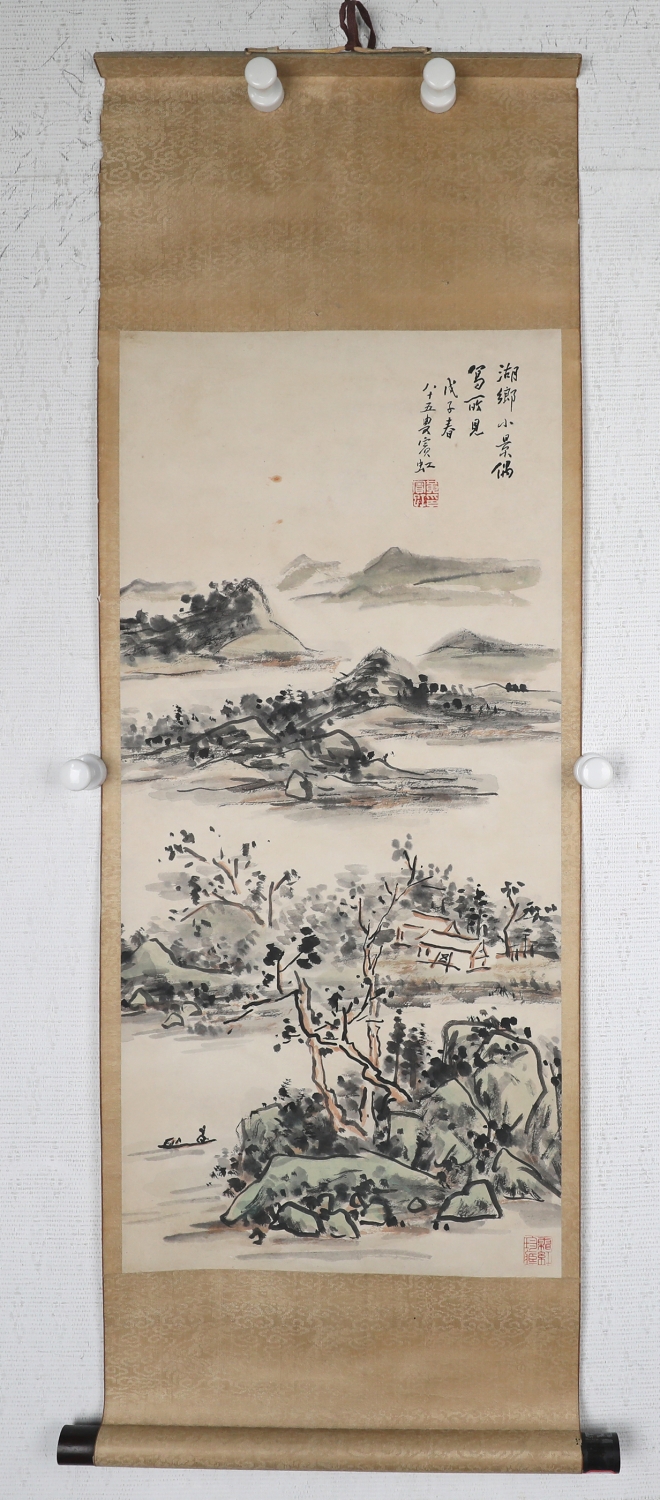 湖鄉小景偶
寫所見
戊子春
八十五叟賓虹